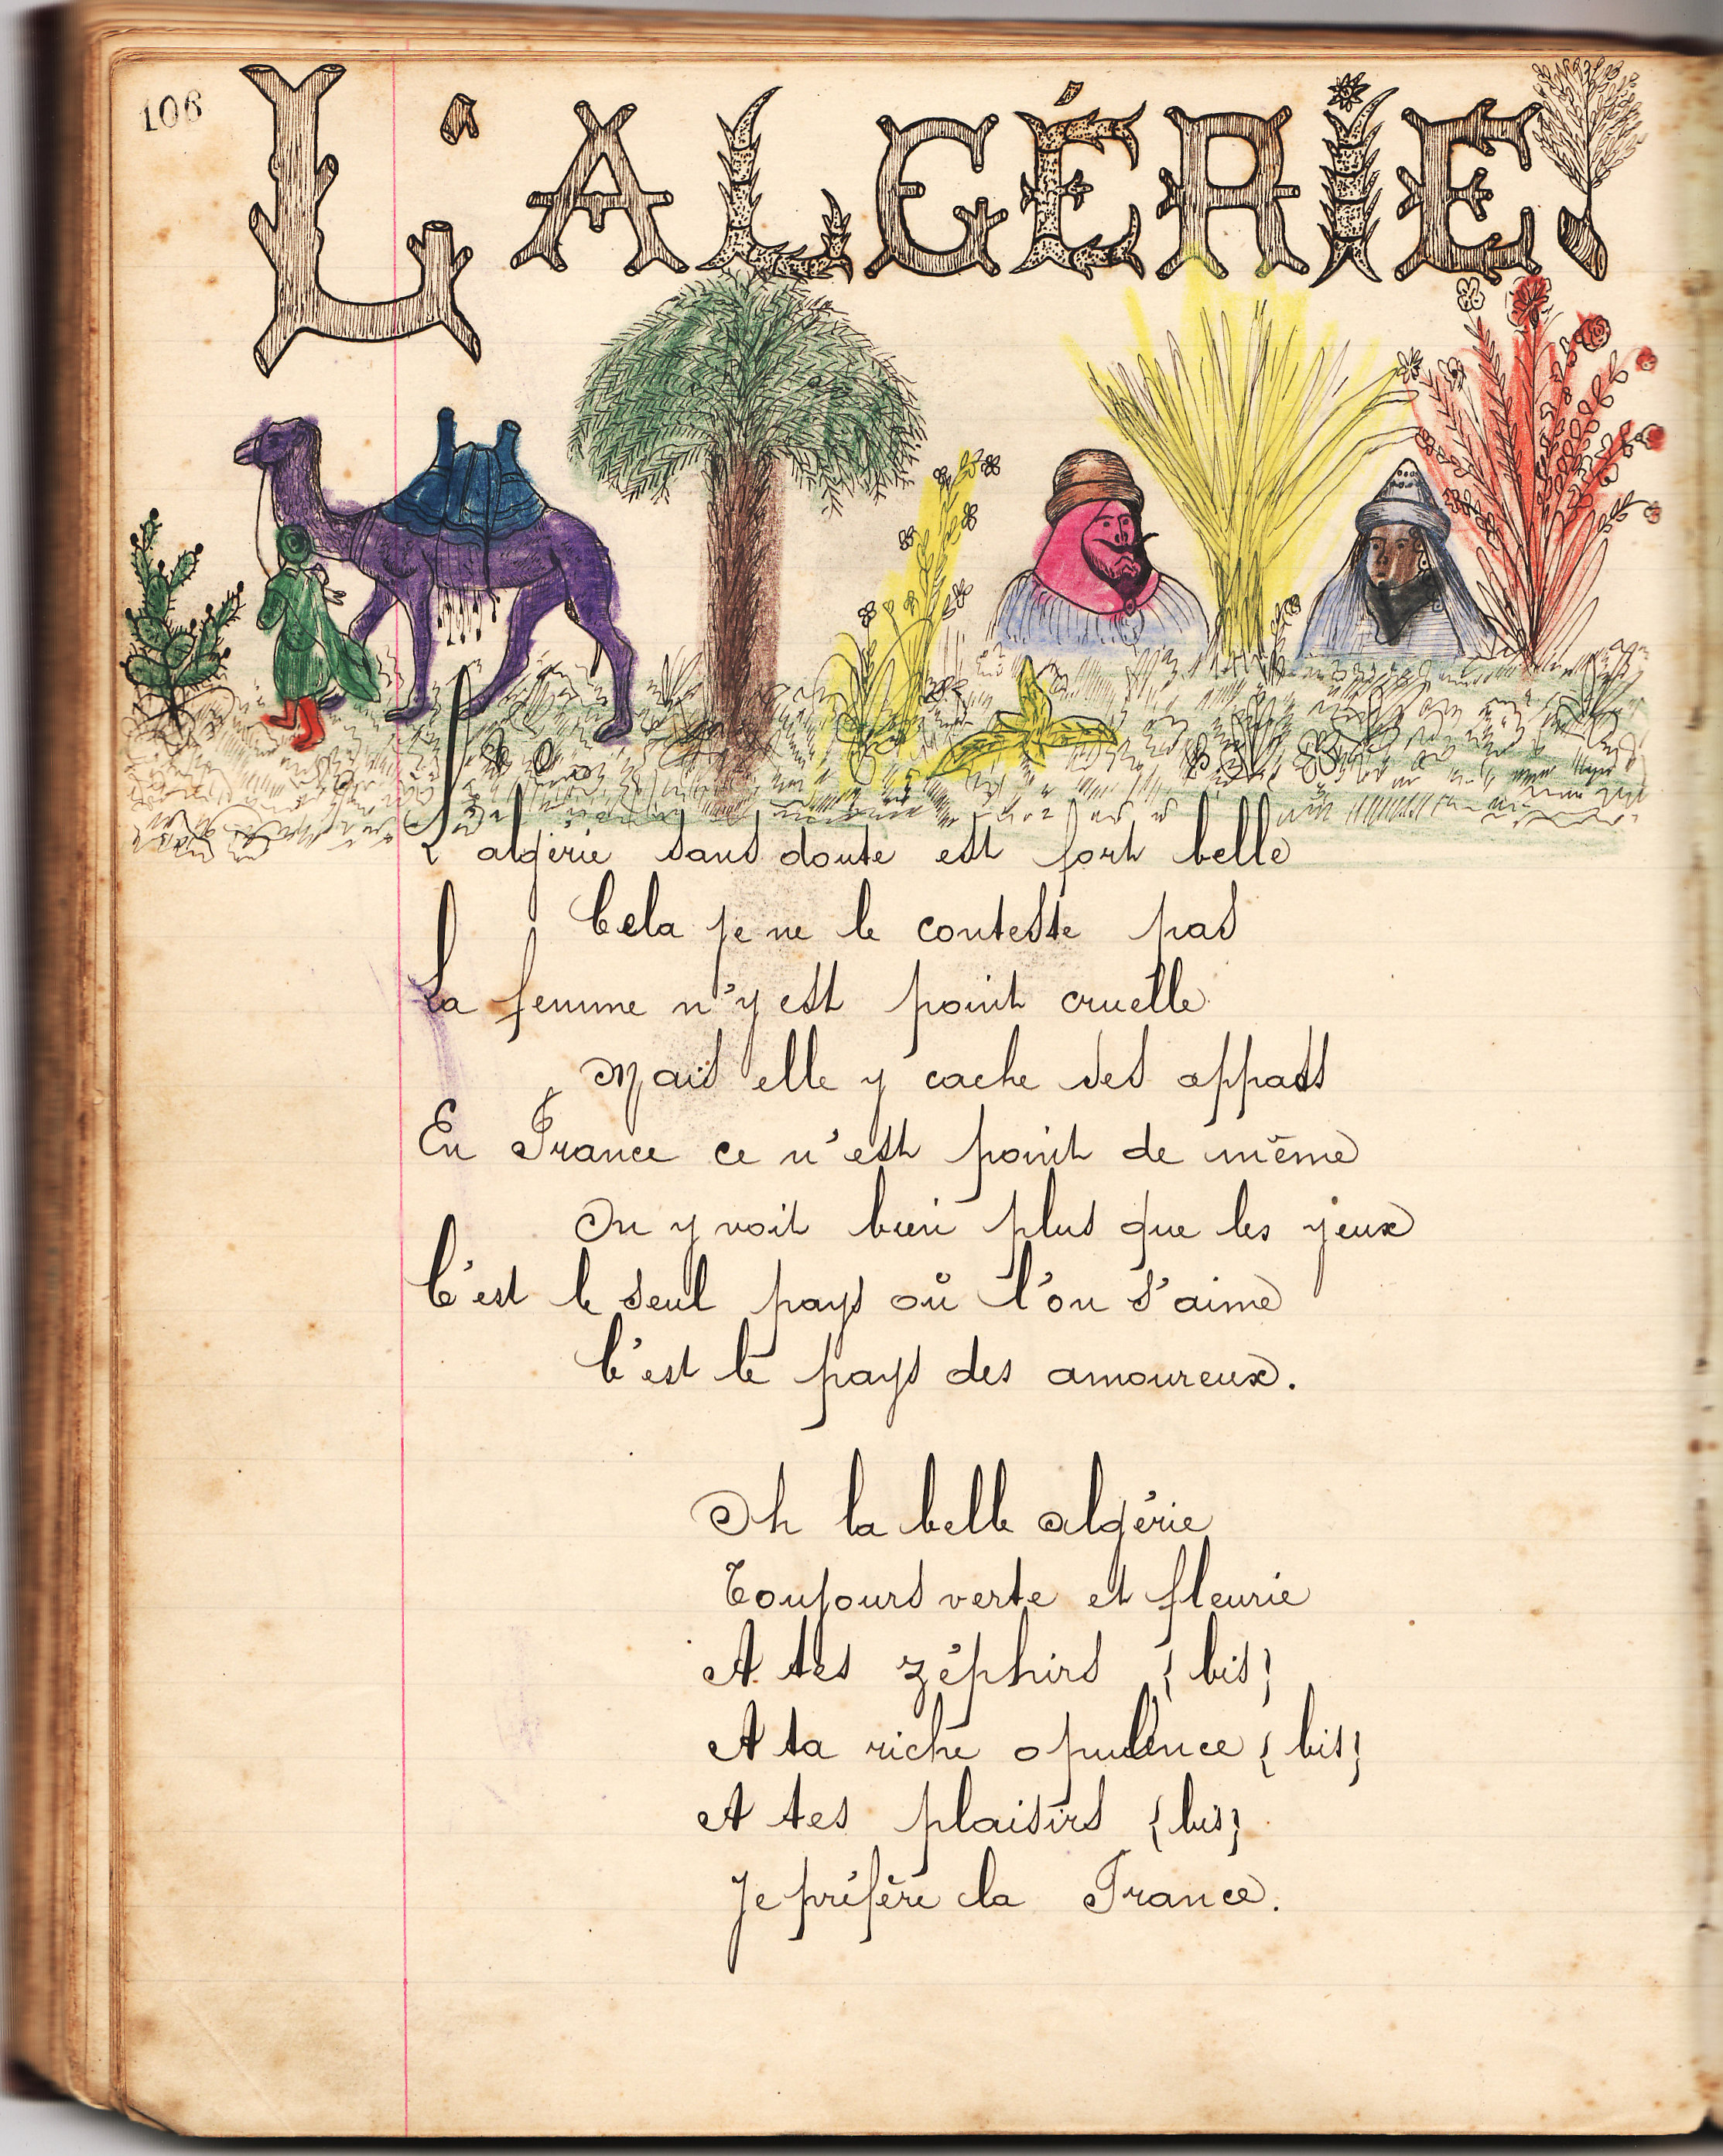 106
L'ALGÉRIE.
L'algérie sans doute est fort belle
Cela je ne le conteste pas
La femme n'y est point cruelle
Mais elle y cache ses appats
En France ce n'est point de même
On y voit bien plus que les yeux
C'est le seul pays où l'on s'aime
C'est le pays des amoureux.
Oh la belle algérie
Toujours verte et fleurie
A tes zéphirs {bis}
A ta riche opulence {bis}
A tes plaisirs {bis}
Je préfère la France.